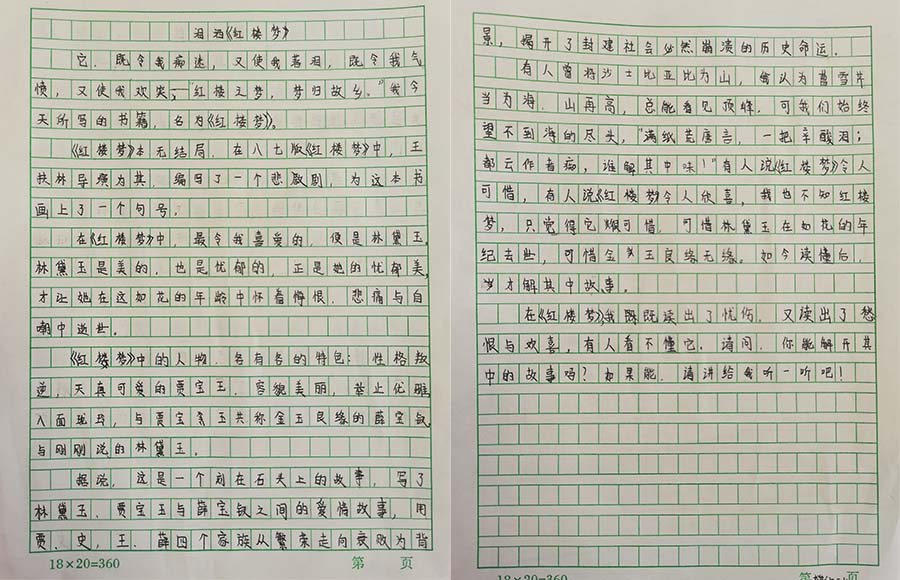 泪洒《红楼梦》
它，既令我痴迷，又使我落泪，既令我气
愤，又使我欢笑，——"红楼之梦，梦归故乡。"我今
天所写的书籍，名为《红楼梦》。
《红楼梦》本无结局，在八七版《红楼梦》中，王
扶林导演为其，编写了一个悲剧，为这本书
画上了一个句号。
在《红楼梦》中，最令我喜爱的，便是林黛玉。
林黛玉是美的，也是忧郁的，正是她的忧郁美，
才让她在这如花的年龄中怀着悔恨、悲痛与自
嘲中逝世。
《红楼梦》中的人物，各有各的特色：性格叛
逆，天真可爱的贾宝玉，容貌美丽，举止优雅
八面玲珑，与贾宝玉共称金玉良缘的薛宝钗
与刚刚说的林黛玉。
据说，这是一个刻在石头上的故事，写了
林黛玉、贾宝玉与薛宝钗之间的爱情故事，用
贾、史，王、薛四个家族从繁荣走向衰败为背
景，揭开了封建社会必然崩溃的历史命运。
有人曾将沙士比亚比为山，我认为曹雪芹
当为海，山再高，总能看见顶峰，可我们始终
望不到海的尽头，"满纸荒唐言，一把辛酸泪；
都云作者痴，谁解其中味！"有人说《红楼梦》令人
可惜，有人说《红楼梦》令人欣喜，我也不知红楼
梦，只觉得它很可惜，可惜林黛玉在如花的年
纪去世，可惜金玉良缘无缘。如今读懂后，
才解其中故事。
在《红楼梦》我既读出了忧伤，又读出了愁
恨与欢喜，有人看不懂它，请问，你能解开其
中的故事吗？如果能，请讲给我听一听吧！
18×20=360 第 页
18×20=360 第 页